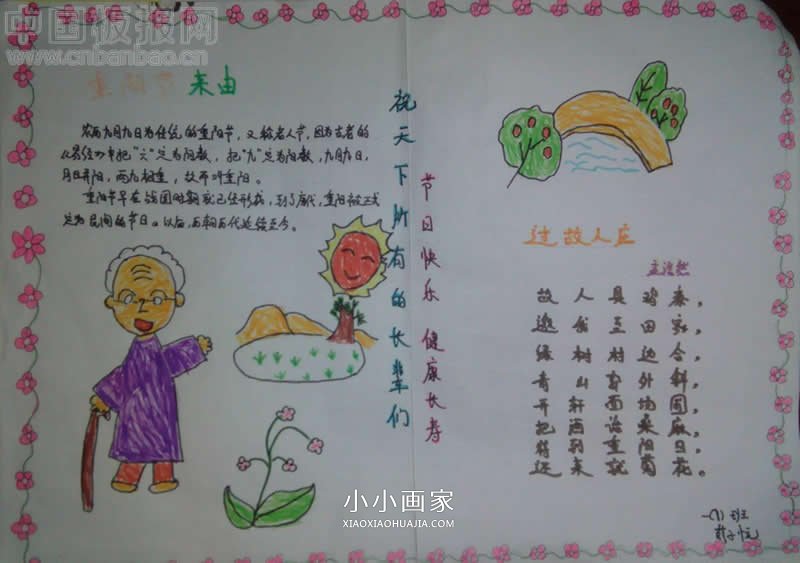 中国板报网
www.cnbanbao.cn
重阳节来由
农历九月九日为传统的重阳节，又称老人节，因为古老的
《易经》中把“六”定为阴数，把“九”定为阳数，九月九日，
月日并阳，两九相重，故而叫重阳。
重阳节早在战国时期就已经形成，到了唐代，重阳被正式
定为民间的节日。以后，历朝历代延续至今。
祝天下所有的长辈们
节日快乐 健康长寿
过故人庄
孟浩然
故人具鸡黍，
邀我至田家，
绿树村边合
青山郭外斜
开轩面场圃
把酒话桑麻
待到重阳日
还来就菊花。
一(7)班
小小画家
XIAOXIAOHUAJIA.COM